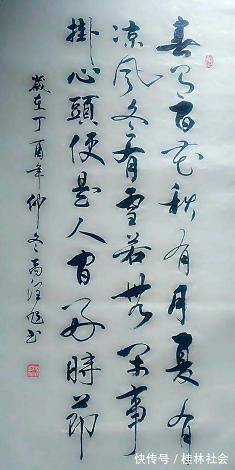 春有百花秋有月夏有
凉風冬有雪若無闲事
掛心頭便是人间好時節
歲在丁酉年仲冬书
快传号/桂林社会